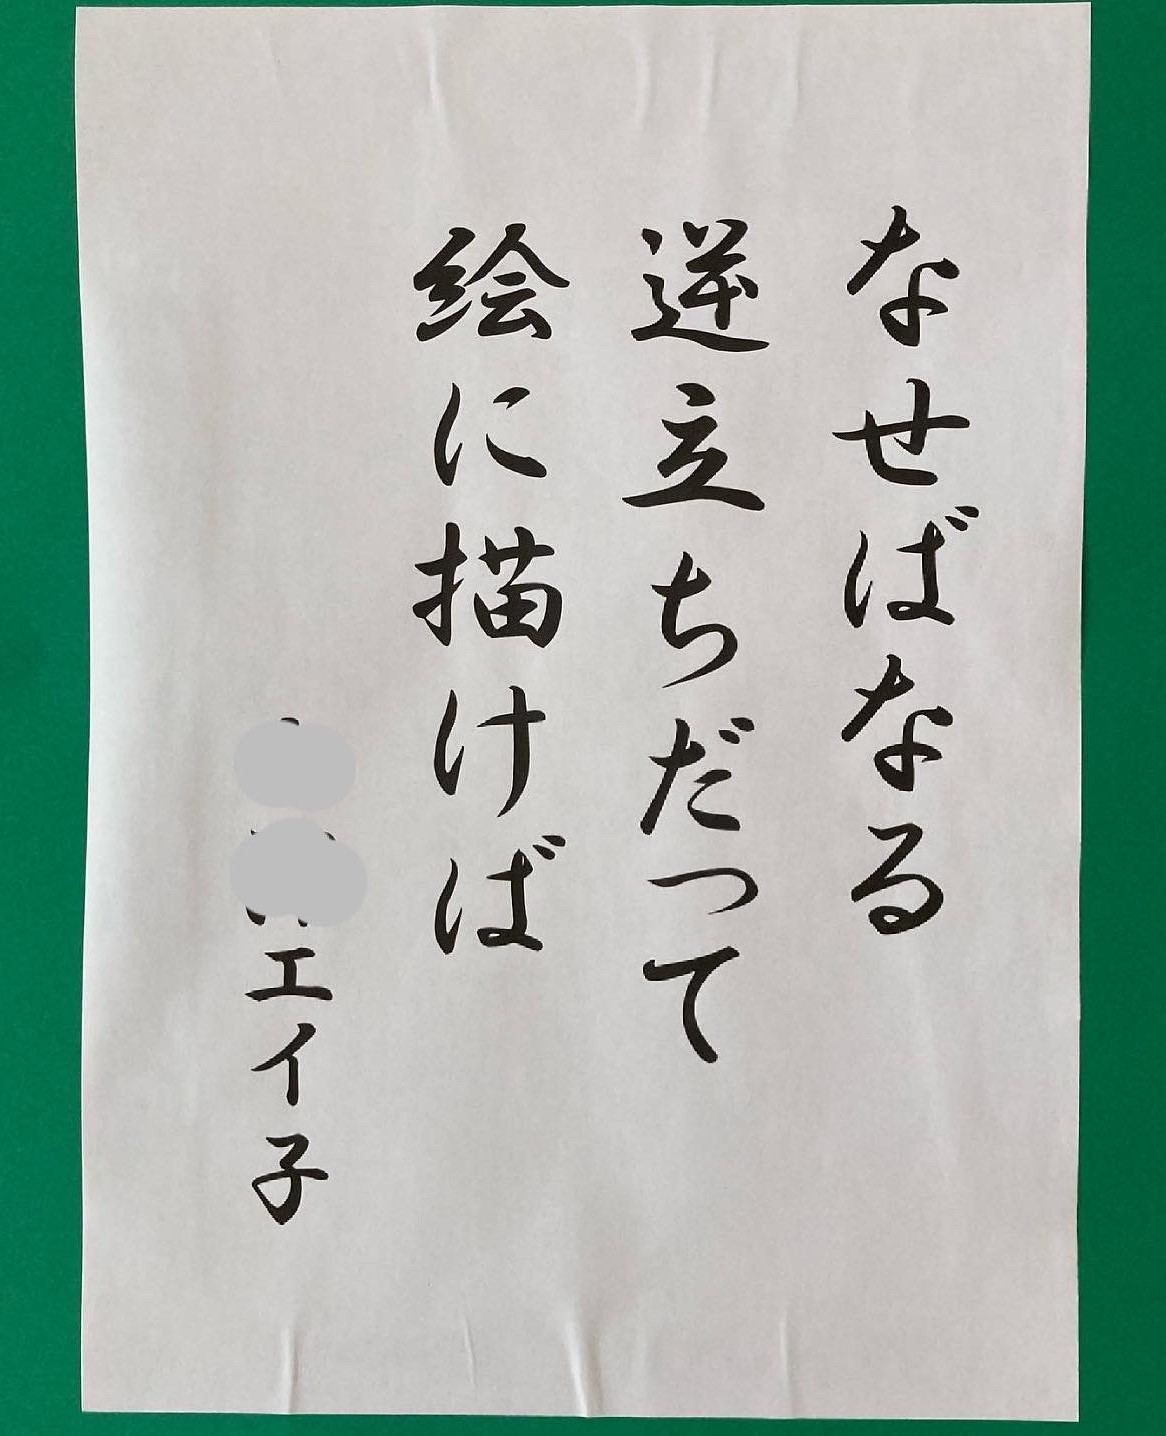 なせばなる
逆立ちだって
絵に描けば
エイ子